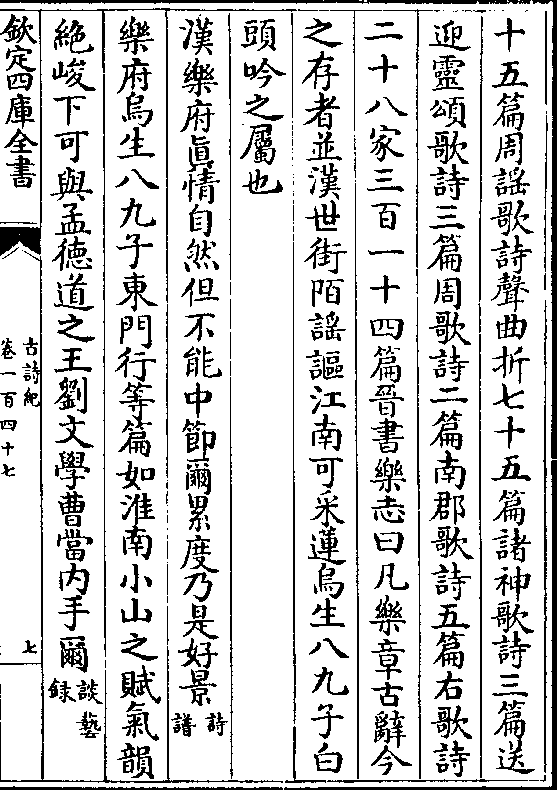 十五篇周謡歌詩聲曲折七十五篇諸神歌詩三篇送
迎靈頌歌詩三篇周歌詩二篇南郡歌詩五篇右歌詩
二十八家三百一十四篇晉書樂志曰凡樂章古辭今
之存者並漢世街陌謡謳江南可采蓮烏生八九子白
頭吟之屬也
漢樂府真情自然但不能中節爾累度乃是好景詩譜
樂府烏生八九子東門行等篇如淮南小山之賦氣韻
絶峻下可與孟德道之王劉文學曹當内手爾談藝録
欽定四庫全書
古詩紀
卷一百四十七
七